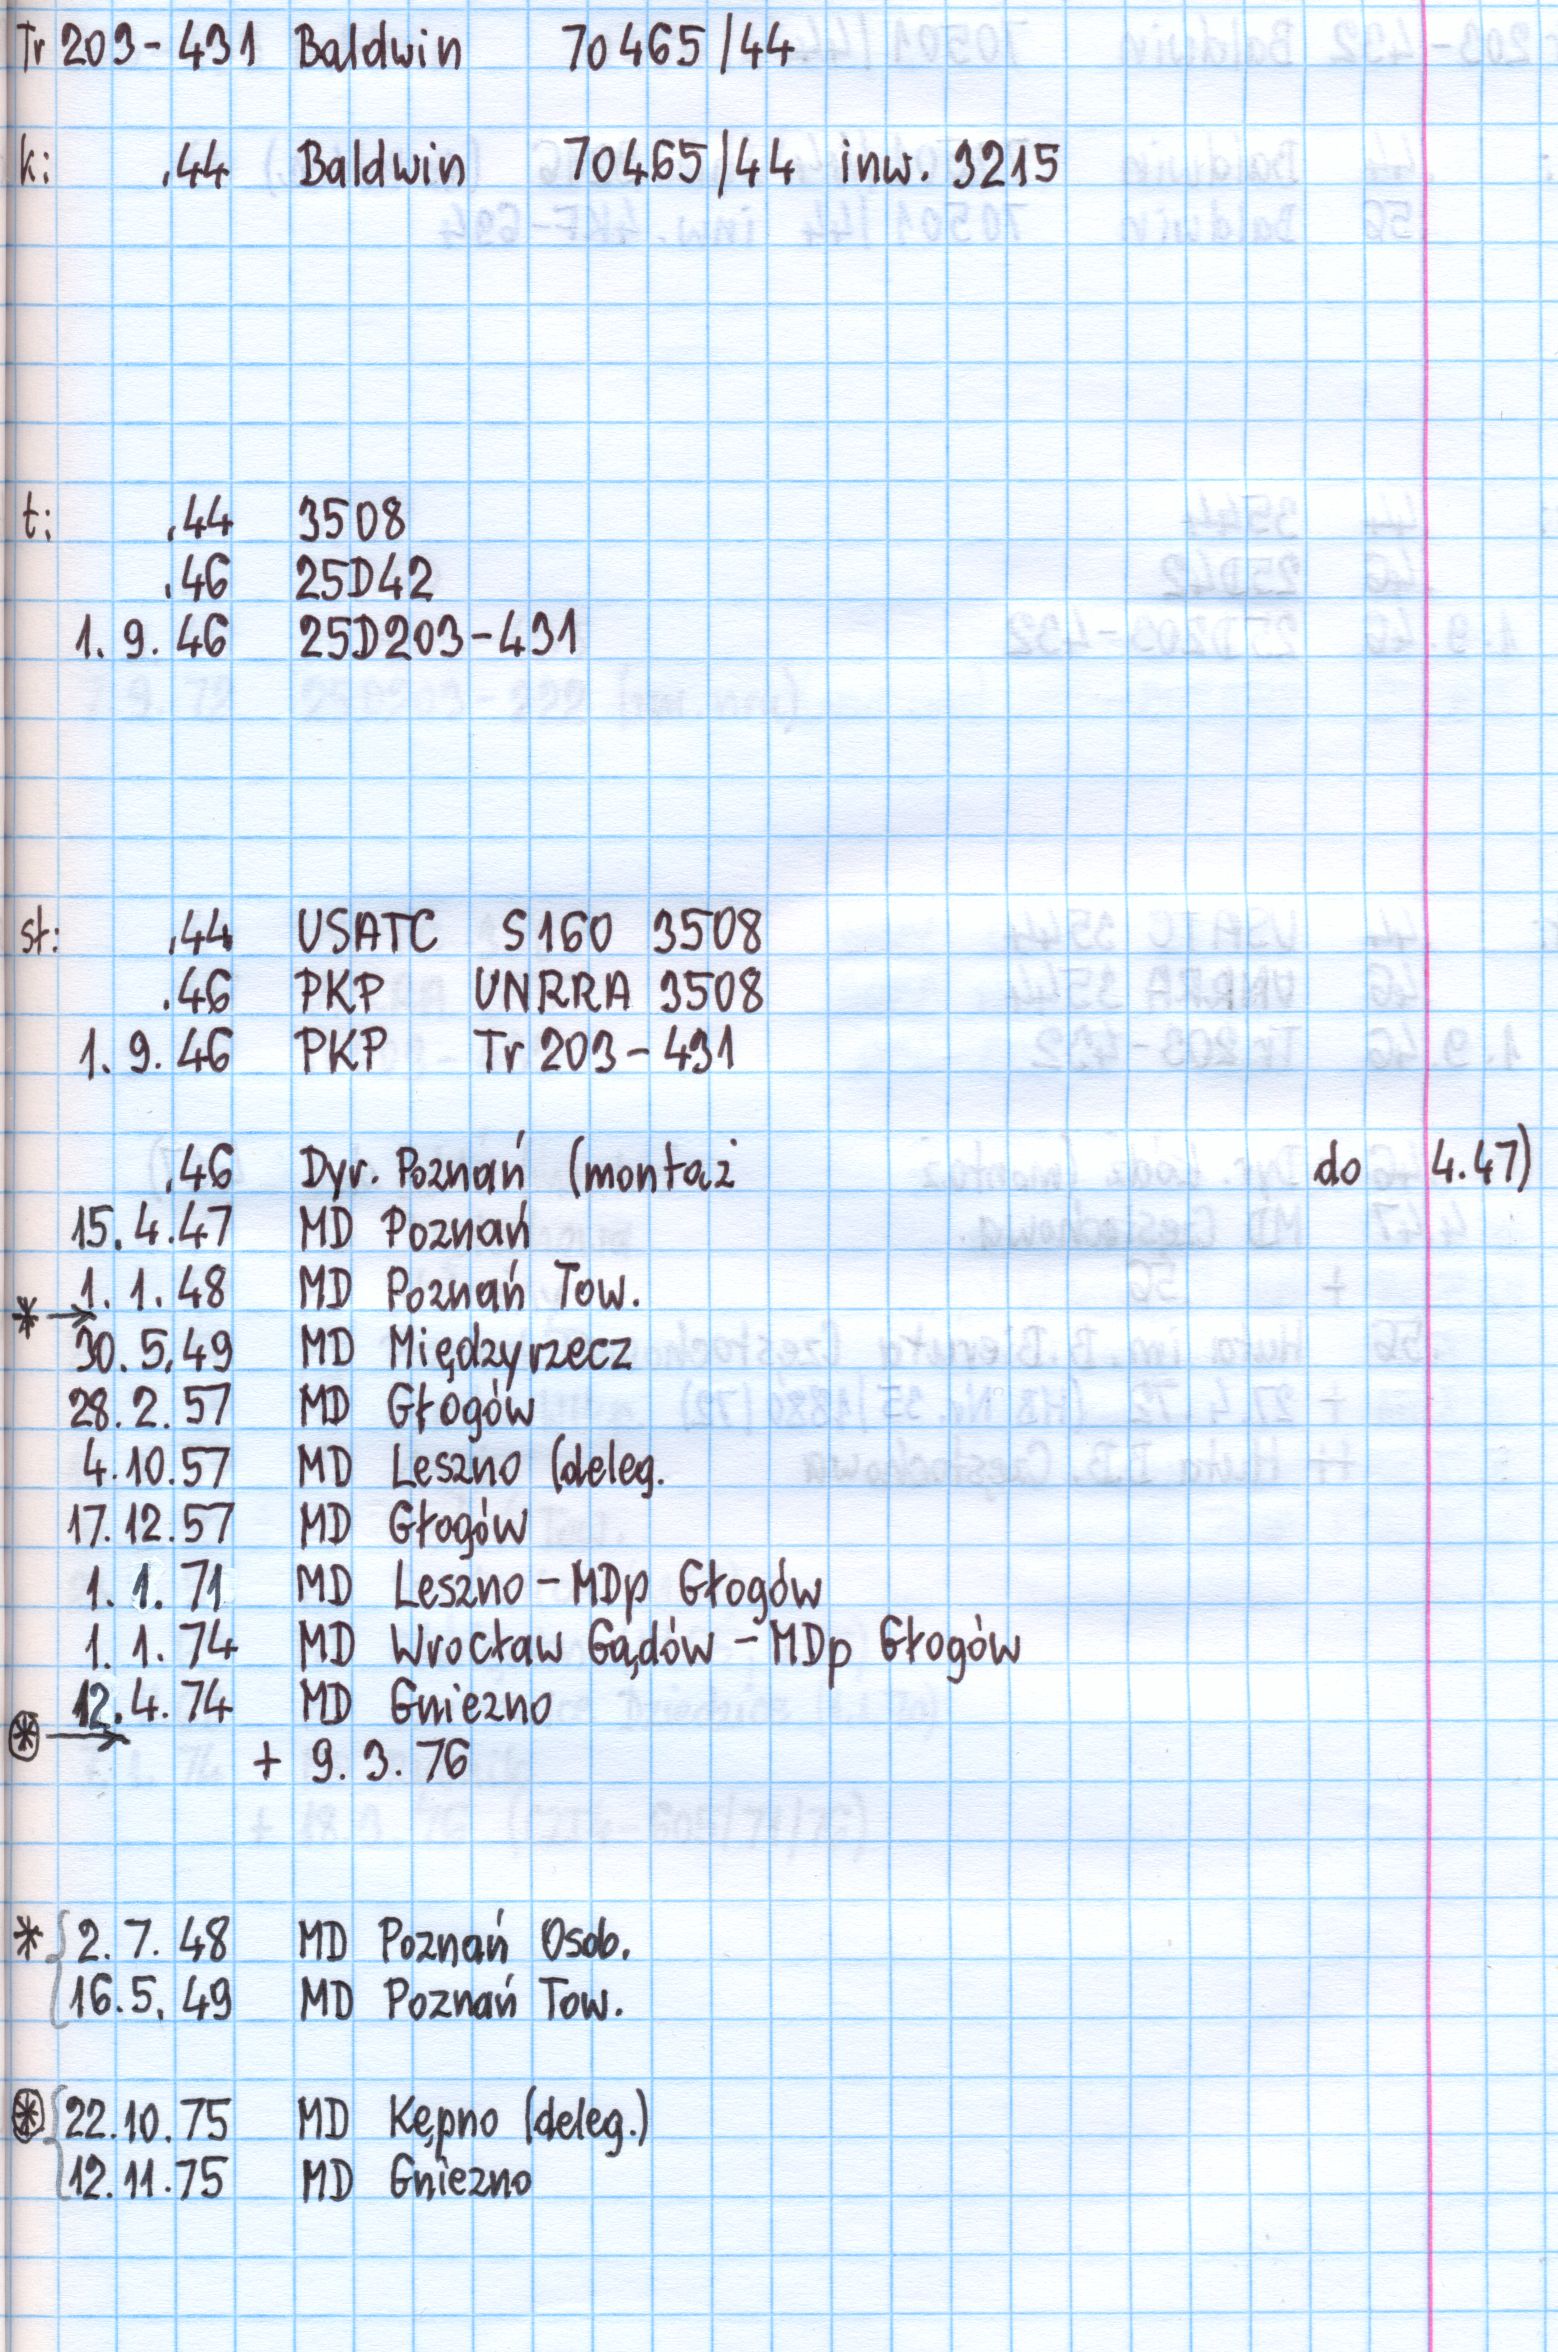 Tr 203-431 Baldwin 70465/44
k: .44 Baldwin 70465/44 inw. 3215
t: .44 3508
.46 25D42
1.9.46 25D203-431
st: .44 USATC S160 3508
.46 PKP UNRRA 3508
1.9.46 PKP Tr 203-431
.46 Dyr. Poznań (montaż do 4.47)
15.4.47 MD Poznań
1.1.48 MD Poznań Tow.
* →
30.5.49 MD Międzyrzecz
28.2.57 MD Głogów
4.10.57 MD Leszno (deleg.
17.12.57 MD Głogów
1.1.71 MD Leszno - MDp Głogów
1.1.74 MD Wrocław Gądów - MDp Głogów
12.4.74 MD Gniezno
⊛ →
+ 9.3.76
* { 2.7.48 MD Poznań Osob.
16.5.49 MD Poznań Tow.
⊛ { 22.10.75 MD Kępno (deleg.)
12.11.75 MD Gniezno